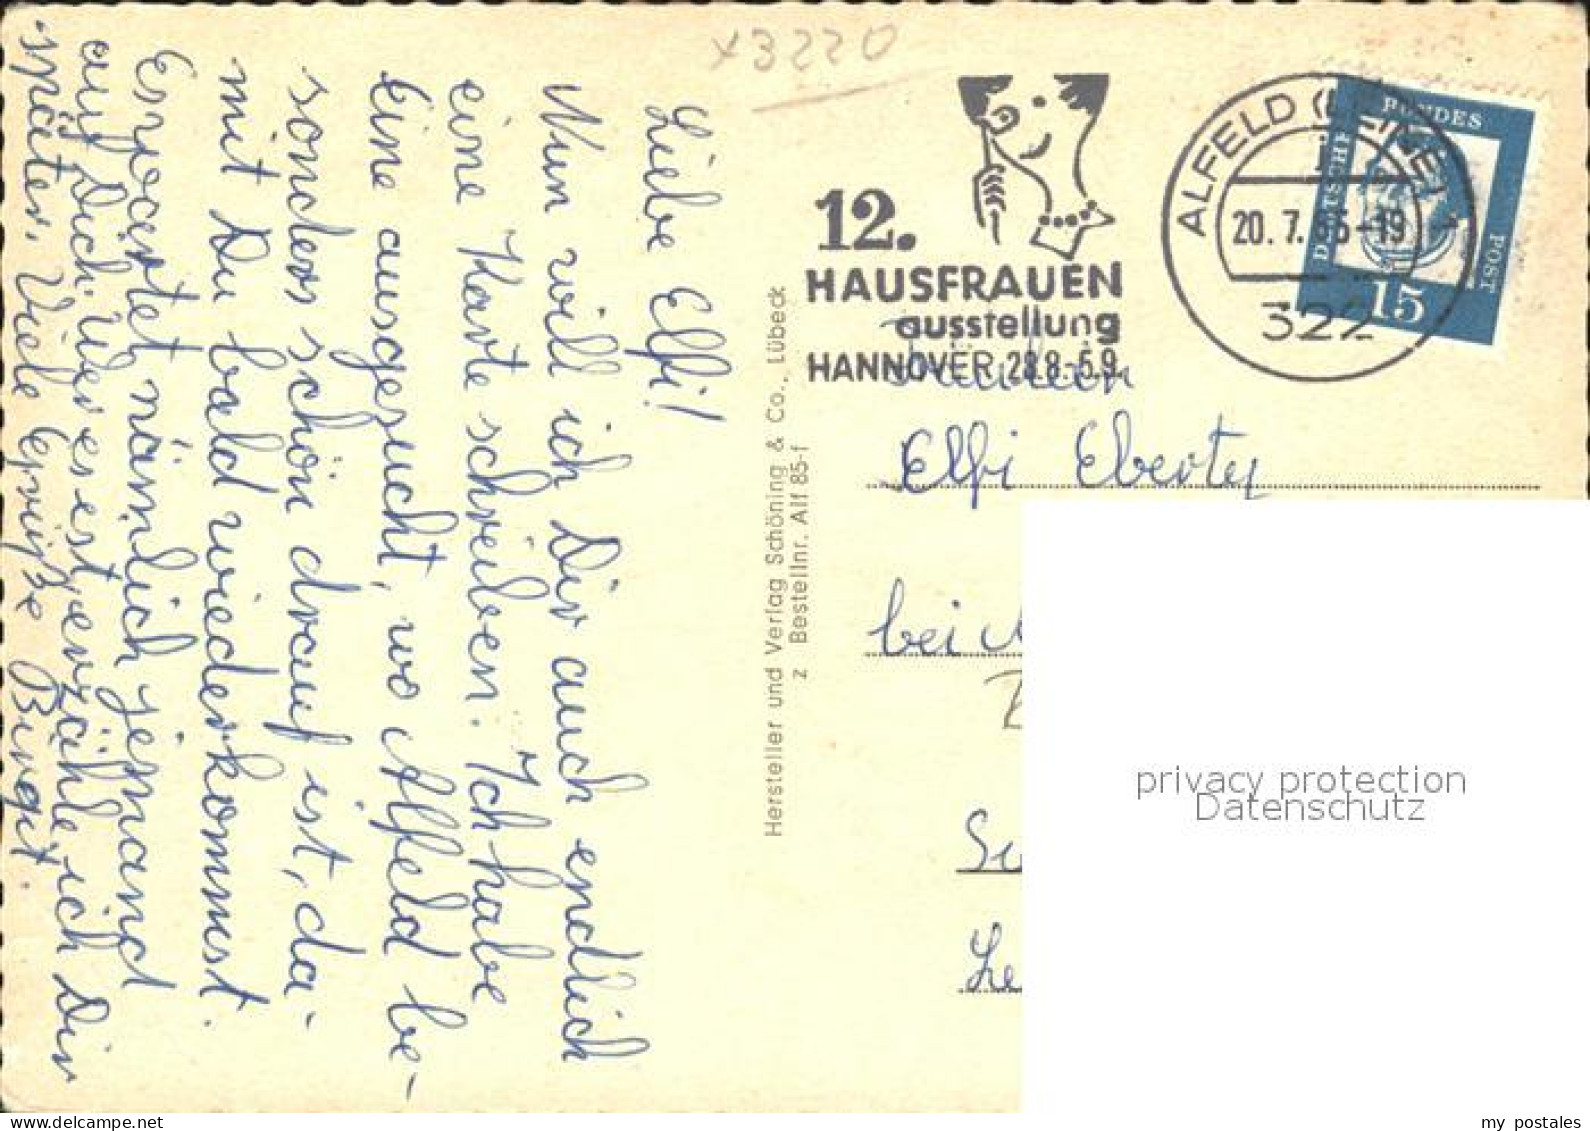 x3220
Liebe Elfi!
Nun will ich Dir auch endlich
eine Karte schreiben. Ich habe
eine ausgesucht, wo Alfeld be-
sonders schön drauf ist, da-
mit Du bald wiederkommst.
Es wartet nämlich jemand
auf Dich. Wer es ist, erzähle ich Dir
später. Viele Grüße Birgit.
Hersteller und Verlag Schöning & Co., Lübeck
z Bestellnr. Alf 85-f
12.
HAUSFRAUEN
ausstellung
HANNOVER 28.8.-5.9.
ALFELD (LEINE)
20.7.66-19
322
DEUTSCHE
BUNDES
POST
15
Fräulein
Elfi Eberty
bei
privacy protection
Datenschutz
my postales